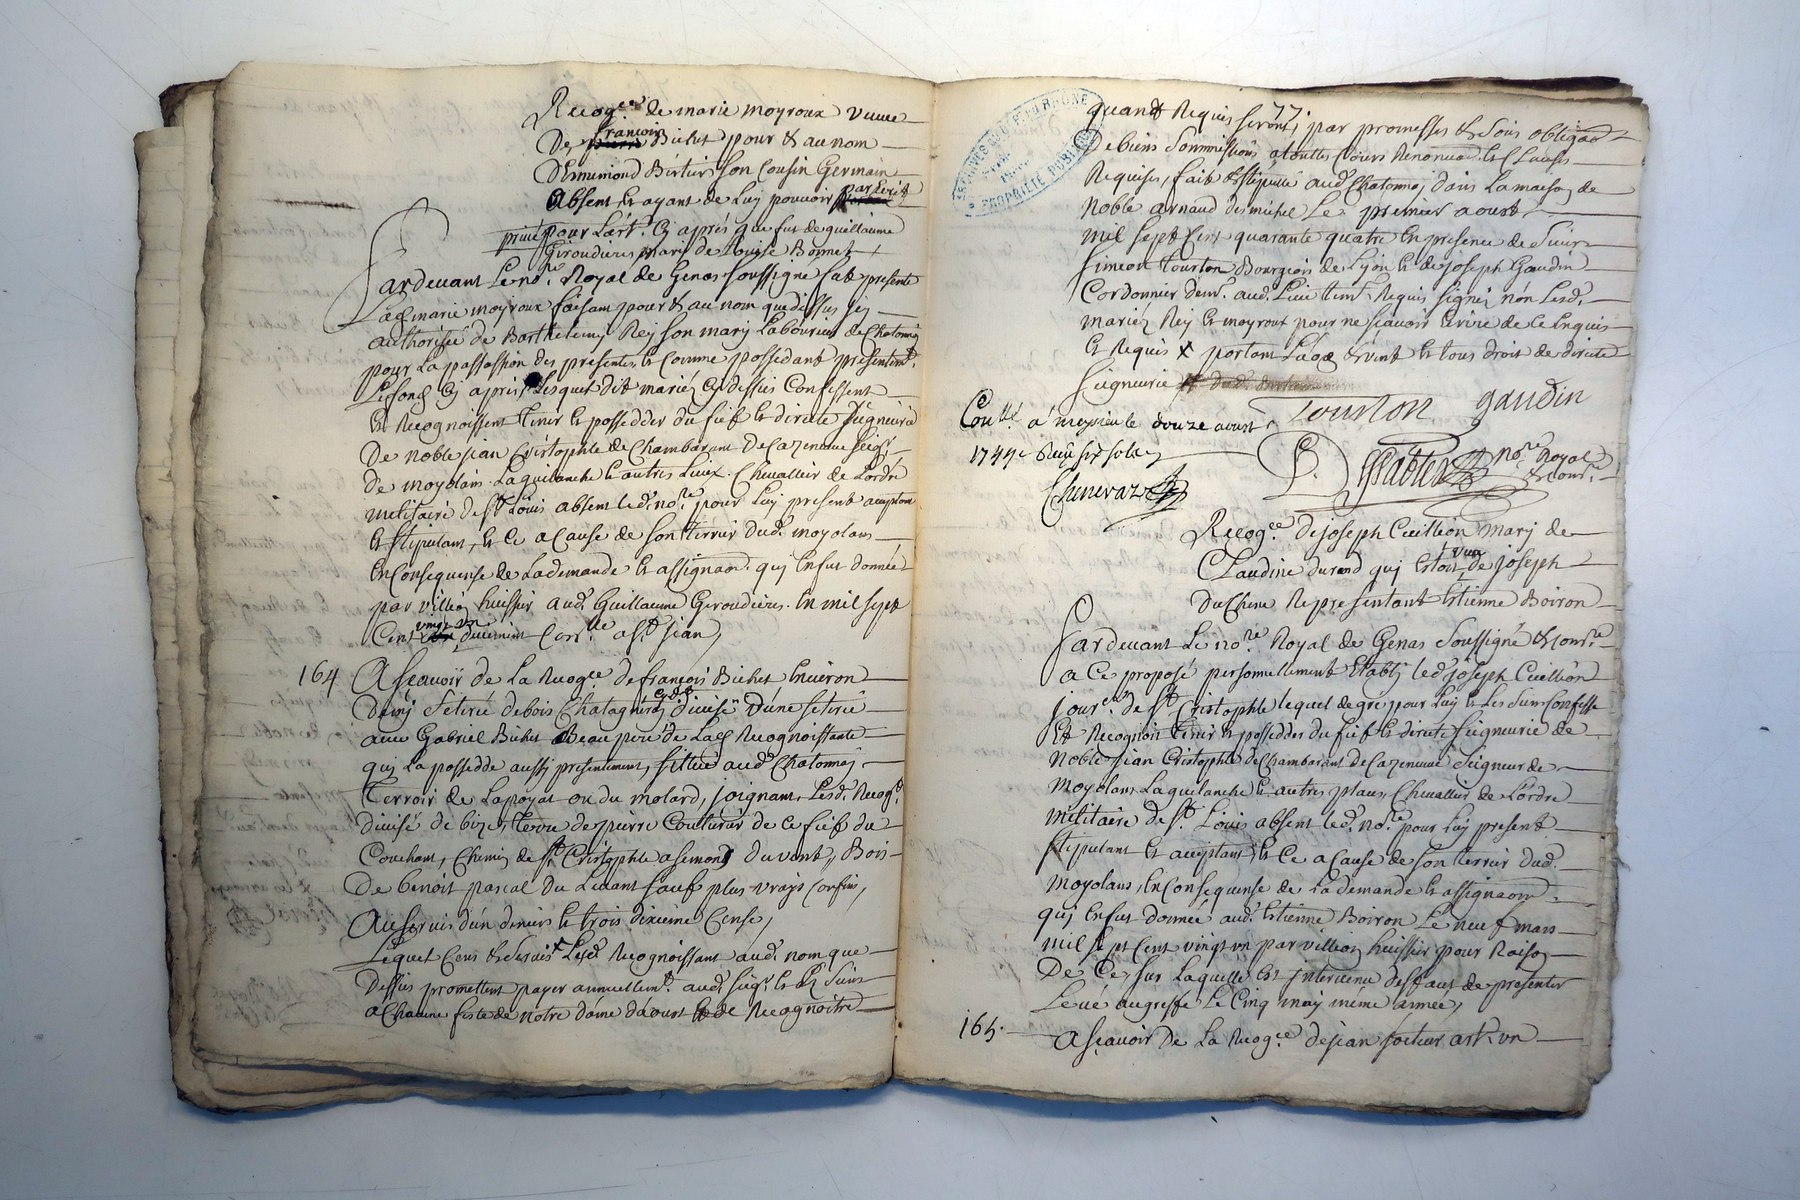 Recog.ce de marie moyroux veuve
De pierre françois Bichet pour & au nom
D'Emumond Bertier son Cousin Germain
absent, et ayant de luy pouvoir par Ecrit
privé pour L'art. Cy aprés que fut de guillaume
Giroudieres mary de Louise Bonnet,
Pardevant Le no.re Royal de Genas soussigné fut presente
Lad. marie moyroux faisant pour & au nom que dessus
authorisée de Barthelemy Rey son mary Laboureur de Chatonay
pour La passassion des presentes, et Comme possedant presentem.t
Le fond Cy aprés, Lesquels dit mariéz Cy dessus Confessent
et Recognoissent tenir et posseder du fief et directe Seigneurie
De noble jean Cristophle de Chambarant De Cazeneuve seig.r
de moyolans Laquilanche et autres Lieux. Chevallier de L'ordre
militaire de S.t Louis absent led.t no.re pour Luy present acceptant
et stipulant, et Ce a Cause de son terrier dud. moyolans
En Consequense de La demande et assignaon. qui En fut donnée
par villion huissier aud. Guillaume Geroudieres. En mil sept
Cent vingt un Con.lle a S.t jean,
164 A Sçavoir de La Recog.ce de françois Bichet Environ
Demy Seterée de bois Chatagnier, divisé d'une seterée
avec Gabriel Bichet Beau pere de Lad. Recognoissante
qui La possedde aussy presentement, situé aud. Chatonay
terroir de Lapoyat ou du molard, joignant, Lesd. Recog.ce
divisé de bize, terre de pierre Couturier de Ce fief du
Couchant, Chemin de S.t Cristophle a Semons du vent, Bois
De benoit pascal du Levant sauf plus vrays Confins,
Au Servis d'un deniers et trois dixieme Cense,
Lequel Cens & Servis Lesd. Recognoissant aud. nom que
Dessus promettent payer annuellem.t aud. seig.r et Es Siens
a Chacune feste de notre dame d'aoust et de Recognoitre
77
quand Requis seront, par promesses & sous obligaon
De biens Soummissions a touttes Cours Renonciaon. et Clauses
Requises, fait & stipullé aud. Chatonay dans La maison de
Noble arnaud desmichel Le premier aoust
mil sept Cent quarante quatre En presence de Sieur
simeon tourton Bourgeois de Lyon et de joseph Gaudin
Cordonnier dem.t aud. Lieu tem.t Requis signez nón Lesd.
mariez Rey et moyroux pour ne scavoir Ecrire de Ce Enquis
et Requis x portant Laod. & vent et tous droit de directe
seigneurie
tourton gaudin
Con.llé a meyrieu le douze aoust
1744 Reçu six sols
Cheneraz
no.re Royal
& Com.re
Recog.ce De joseph Cuillion mary de
Claudine durand qui Etoit veuve de joseph
Duchene Representant Etienne Boiron
Pardevant Le no.re Royal de Genas Soussigné & Com.re
a Ce proposé personnellement Etably led. joseph Cuillion
jour.er de S.t Cristophle lequel de gré pour Luy et Les Siens Confesse
et Recognoit tenir et posseder du fief et directe seigneurie de
Noble jean Cristophle de Chambarant de Cazeneuve Seigneur de
Moyolans Laquilanche et autres places, Chevallier de L'ordre
militaire de S.t Louis absent led. no.re pour luy present
stipulant et acceptant et Ce a Cause de son terrier dud.
moyolans, En Consequense de La demande et assignaon
qui En fut donnée aud. Etienne Boiron Le neuf mars
mil sept Cent vingt un par villion huissier pour Raison
De Ce, sur Laquelle Est intervenu deffaut de presenter
Levé au greffe Le Cinq may méme année,
165. A Sçavoir De La Recog.ce de jean art. un